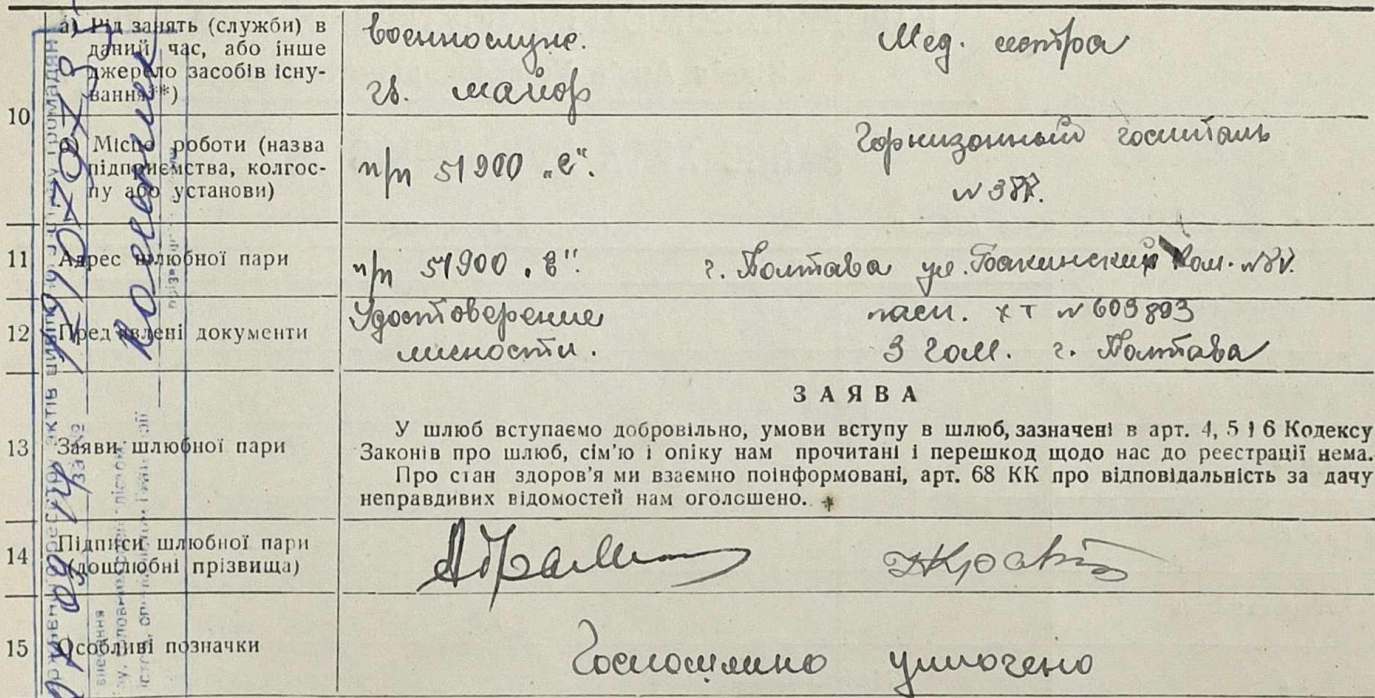 10 а) Рід занять (служби) в даний час, або інше джерело засобів існування**)
военнослуж.
гв. майор
Мед. сестра
б) Місце роботи (назва підприємства, колгоспу або установи)
п/п 51900 „Е".
Горнизонный госпиталь
N 387.
11 Адрес шлюбної пари
п/п 51900 „Е".
г. Полтава ул. Бакинский
12 Пред'явлені документи
Удостоверение
личности.
пасп. ХТ N 609893
3 ГОМ. г. Полтава
ЗАЯВА
13 Заяви шлюбної пари
У шлюб вступаємо добровільно, умови вступу в шлюб, зазначені в арт. 4, 5 і 6 Кодексу
Законів про шлюб, сім'ю і опіку нам прочитані і перешкод щодо нас до реєстрації нема.
Про стан здоров'я ми взаємно поінформовані, арт. 68 КК про відповідальність за дачу
неправдивих відомостей нам оголошено.
14 Підписи шлюбної пари
(дошлюбні прізвища)
15 Особливі позначки
Госпошлина уплочено